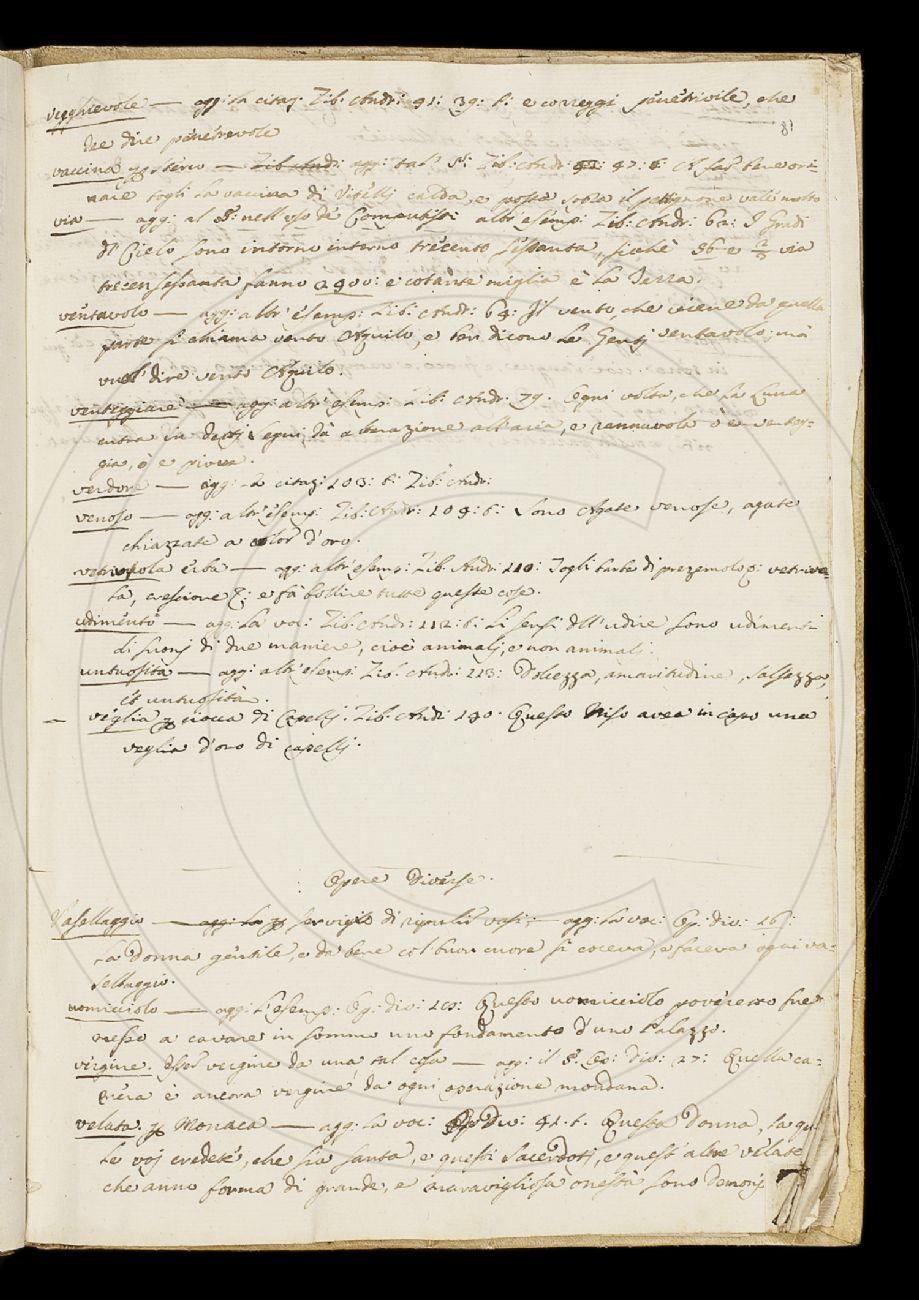 vegghievole — agg: la citaz: Zib: Andr: 91: 39: t: e correggi penetrivile, che
81
dee dire penetrevole
vaccina p sterco — Zib: Andr: agg: tal §: Zib: Andr: 47: t: A far bene ori-
nare togli la vaccina di Vitelli calda, e posta sobra il pettignone vale molto
via — agg: al §: nell'uso de Computisti altr'esemp: Zib: Andr: 62: I Gradi
del Cielo sono intorno intorno trecento sessanta, sicchè 56 e 2/3 via
trecensessanta fanno 2900: e cotante miglia è la Terra.
ventavolo — agg: altr'esemp: Zib: Andr: 64: Il vento, che viene da quella
parte si chiama vento Aquilo, e ben dicono le Genti ventavolo, ma
vuol dire vento Aquilo.
venteggiare — agg: altr'esemp: Zib: Andr: 79. Ogni volta, che la Luna
entra in detti segni, dà alterazione all'aria, e rannuvola o e venteg-
gia, o e piova.
verdore — agg: la citaz: 103: t: Zib: Andr:
venoso — agg: altr'esemp: Zib: Andr: 104: t: Sono Agate venose, agate
chiazzate a color d'oro.
vetriuola erba — agg: altr'esemp: Zib: Andr: 110: Togli barbe di prezemolo &: vetriuo-
la, crescione &: e fa bollire tutte queste cose.
udimento — agg: la voc: Zib: Andr: 112: t: Li sensi dell'udire sono udimenti
di suoni di due maniere, cioè animali, e non animali.
untuosità — agg: altr'esemp: Zib: Andr: 113: Dolcezza, amaritudine, salsezza,
et untuosità.
— veglia p ciocca di Capelli. Zib: Andr: 130. Questo Niso avea in capo una
veglia d'oro di capelli.
Opere Diverse.
Vasellaggio — agg: la p servigio di ripulir vasi; — agg: la voc: Op: div: 16:
La donna gentile, e da bene col buon cuore si coceva, e faceva ogni va-
sellaggio.
uomicciolo — agg: l'esemp: Op: div: 10: Questo uomicciolo poveretto fue
messo a cavare in somma uno fondamento d'uno Palazzo.
virgine. esser vergine da una tal cosa — agg: il §. Op: div: 27: Quella ca-
riera è ancora vergine da ogni operazione mondana.
velata. p Monaca — agg: la voc: Op: div: 41. t. Questa Donna, la qua-
le voi credete, che sia santa, e questi Sacerdoti, e quest'altre velate
che anno forma di grande, e maravigliosa onestà sono Demonj